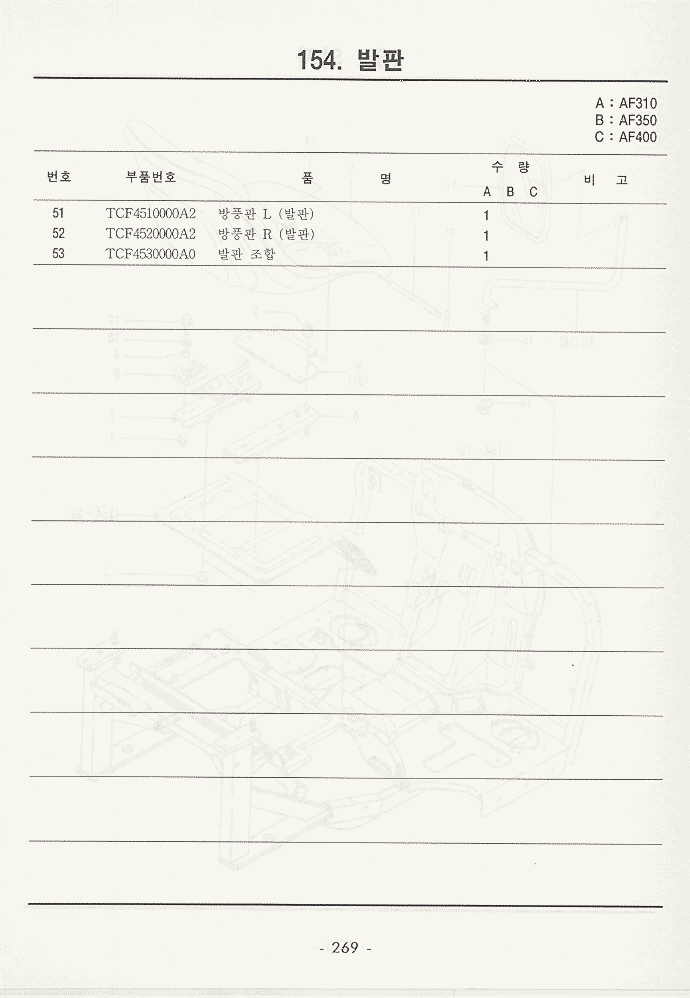 154. 발판
A : AF310
B : AF350
C : AF400
번호 부품번호 품 명 수 량 비 고
A B C
51 TCF4510000A2 방풍판 L (발판) 1
52 TCF4520000A2 방풍판 R (발판) 1
53 TCF4530000A0 발판 조합 1
- 269 -